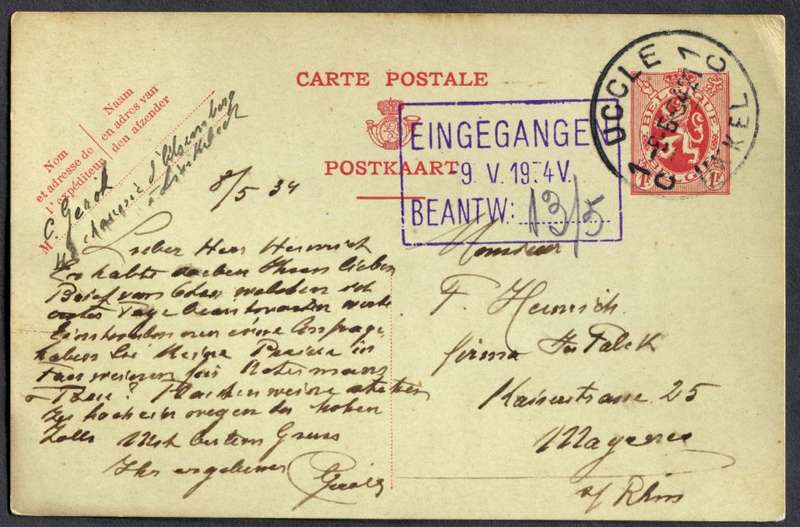 CARTE POSTALE
POSTKAART
Nom
et adresse de
l'expéditeur
Naam
en adres van
den afzender
M
C. Gerith
chaussée d'Alsemberg
Linkebeek
UCCLE 1
UKKEL
C C
BELGIQUE
BELGIË
1F
EINGEGANGEN
-9. V. 1934 V.
BEANTW: 13/5
8/5 34
Lieber Herr Heinrich
Erhalte soeben Ihren lieben
Brief vom 6ten welchen ich
Tage beantworten werde
Einstweilen nur eine Anfrage
haben Sie keine Preise in
Fassweinen für
Flaschenweine stehen
zu hoch ein wegen der hohen
Zölle Mit bestem Gruss
Ihr ergebener
Monsieur
F. Heinrich
firma Falck
Kaiserstrasse 25
Mayence
s/ Rhin